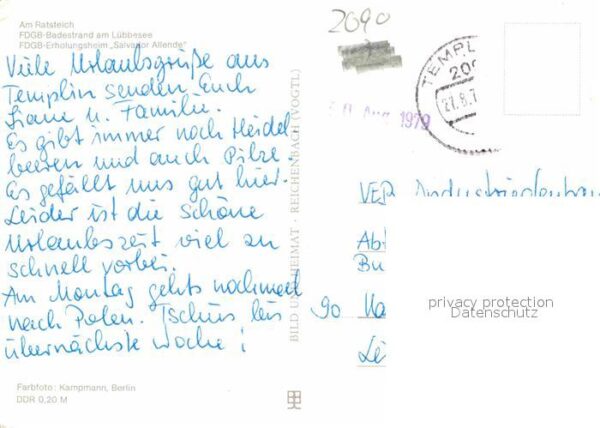 Am Ratsteich
FDGB-Badestrand am Lübbesee
FDGB-Erholungsheim „Salvador Allende"
Viele Urlaubsgrüße aus
Templin senden Euch
Liane u. Familie.
Es gibt immer noch Heidel
beeren und auch Pilze.
Es gefällt uns gut hier.
Leider ist die schöne
Urlaubszeit viel zu
schnell vorbei.
Am Montag gehts nochmal
nach Polen. Tschüs bis
übernächste Woche!
Farbfoto: Kampmann, Berlin
DDR 0,20 M
BILD UND HEIMAT · REICHENBACH (VOGTL)
2090
TEMPL
209
27.8.7
Aug. 1979
VEB
Abt
Bu
90
privacy protection
Datenschutz